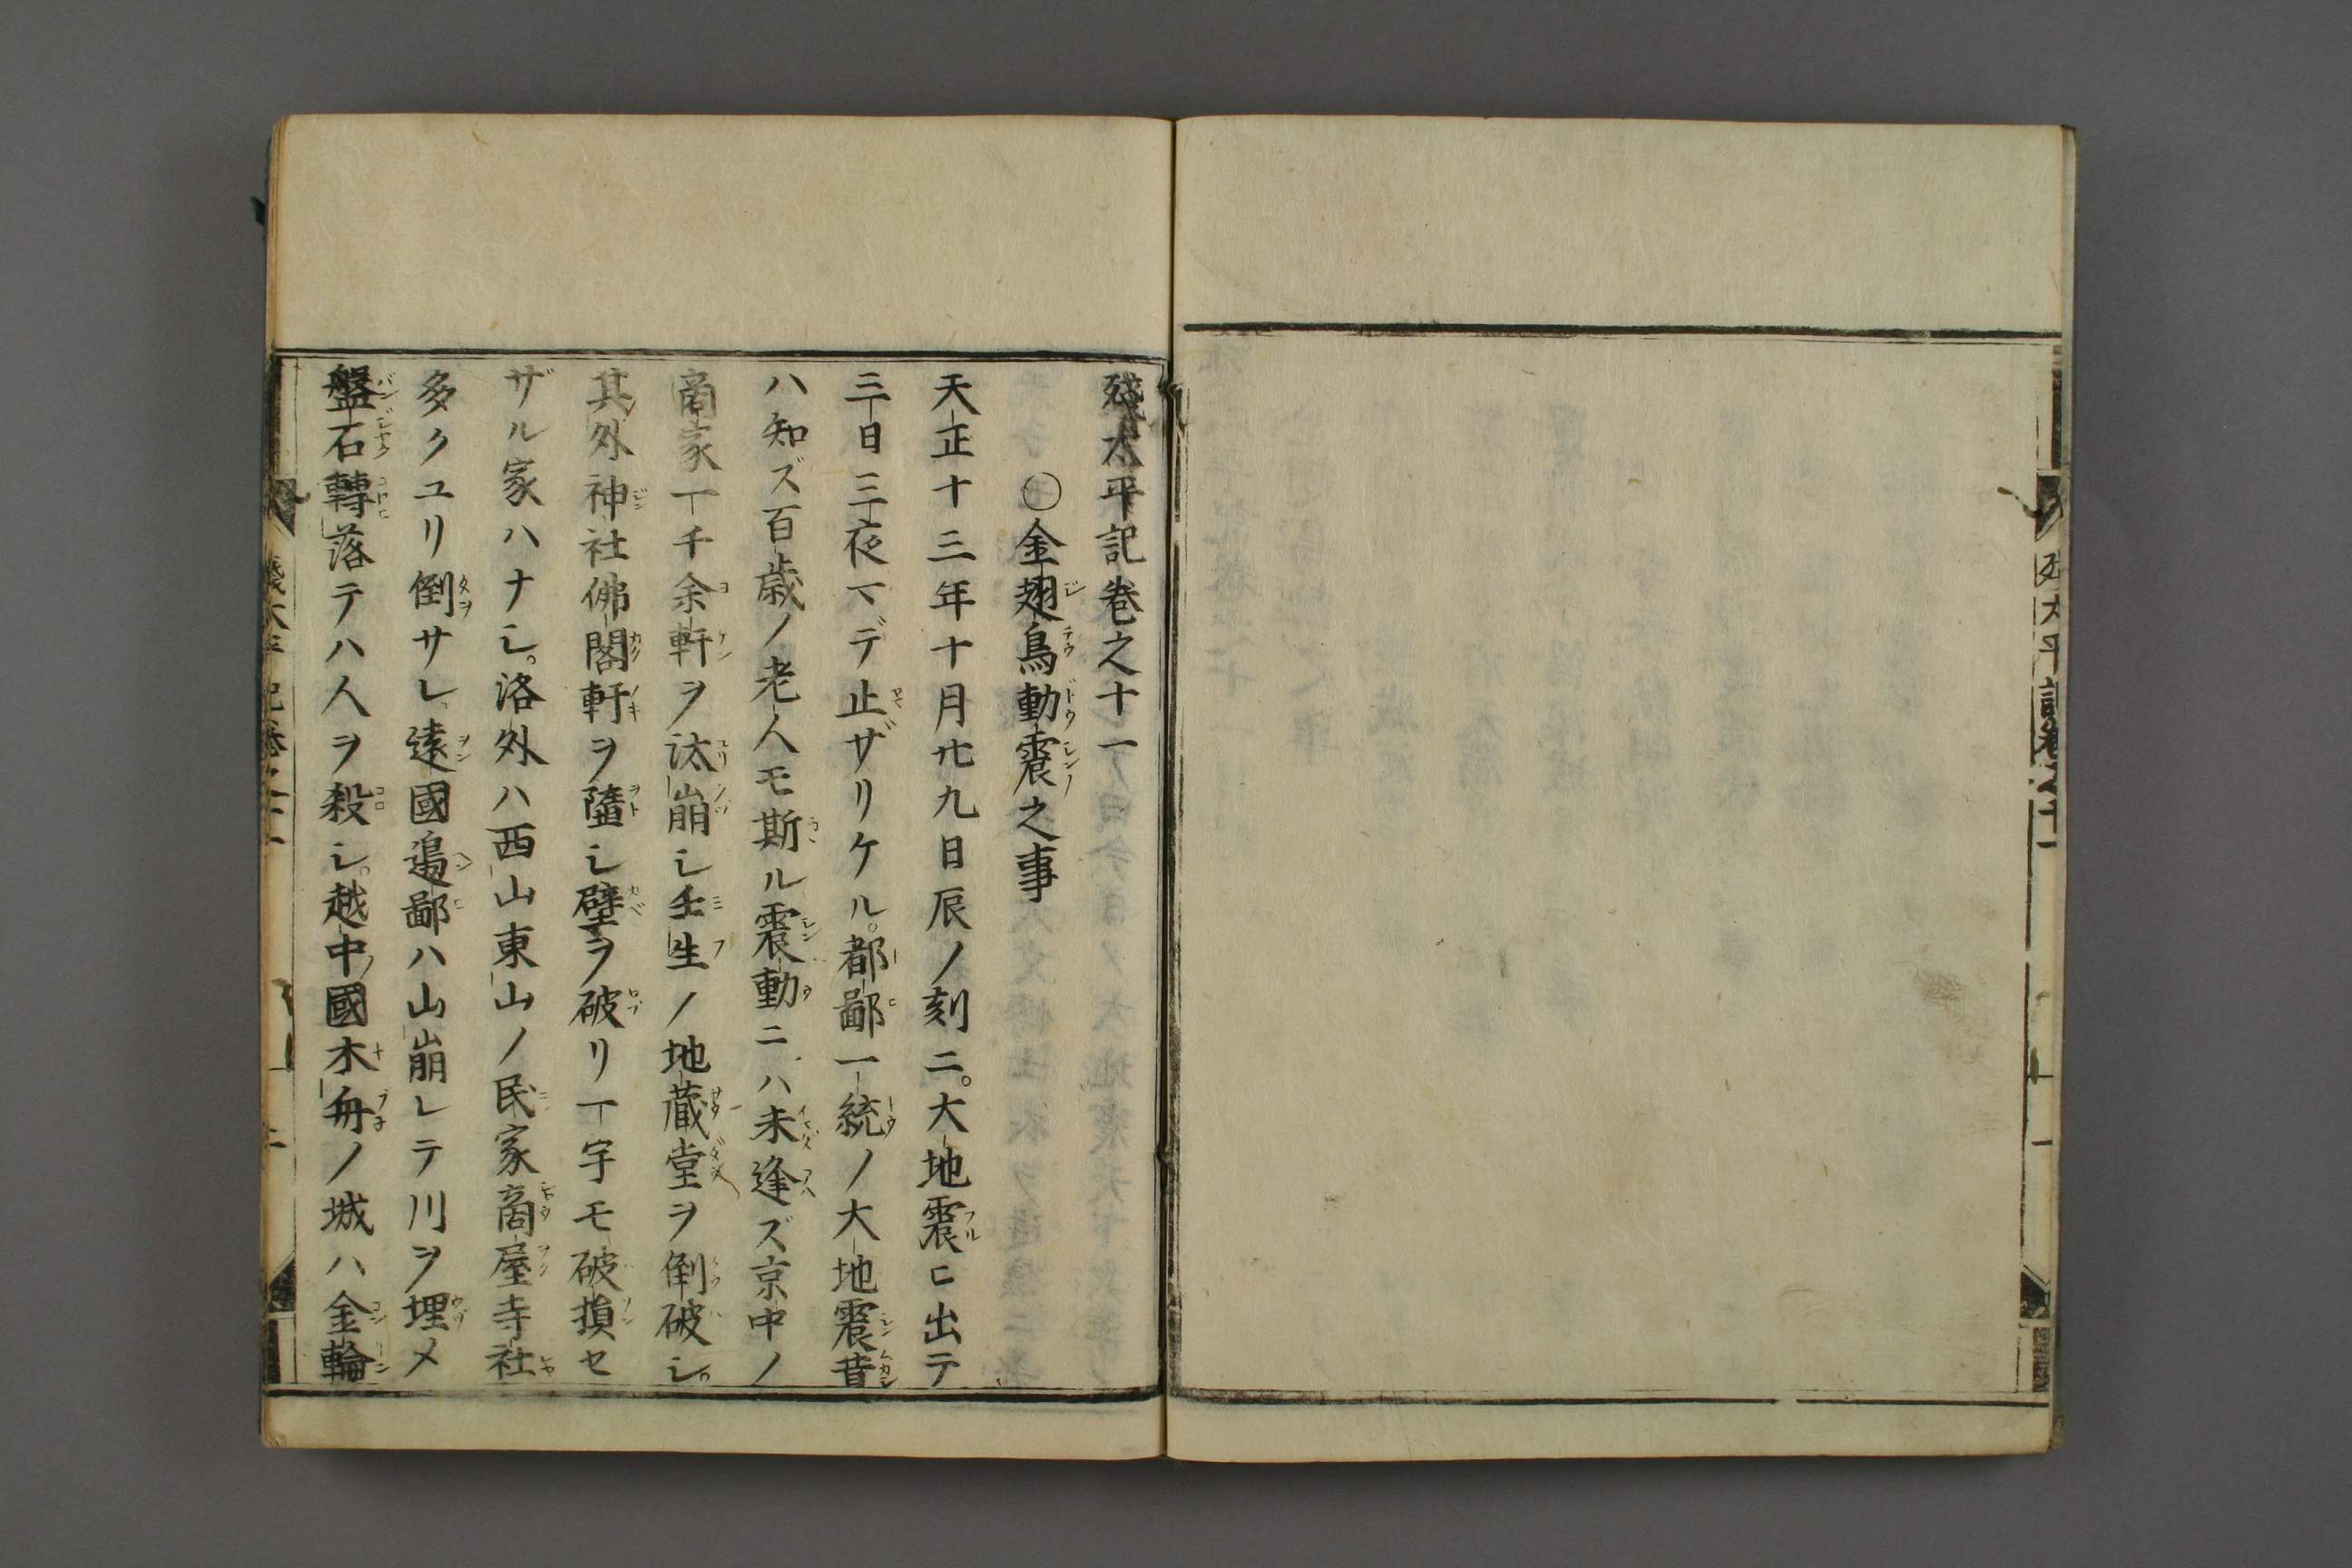 残太平記巻之十一
○金翅鳥動震之事
天正十三年十月廿九日辰ノ刻ニ。大地震ヒ出テ
三日三夜マデ止ザリケル。都鄙一統ノ大地震昔
ハ知ズ百歳ノ老人モ斯ル震動ニハ未逢ズ京中ノ
商家一千余軒ヲ汰崩シ壬生ノ地蔵堂ヲ倒破シ。
其外神社佛閣軒ヲ墮シ壁ヲ破リ一宇モ破損セ
ザル家ハナシ。洛外ハ西山東山ノ民家商屋寺社
多クユリ倒サレ遠國邉鄙ハ山崩レテ川ヲ埋メ
盤石轉落テハ人ヲ殺シ。越中ノ國木舟ノ城ハ金輪